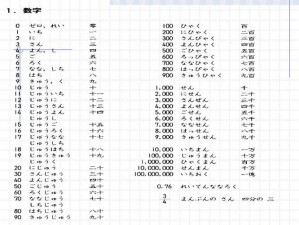 1. 数字
0 ゼロ、れい 零
1 いち 一
2 に 二
3 さん 三
4 よん、し 四
5 ご 五
6 ろく 六
7 なな、しち 七
8 はち 八
9 きゅう、く 九
10 じゅう 十
11 じゅういち 十一
12 じゅうに 十二
13 じゅうさん 十三
14 じゅうよん 十四
じゅうし
15 じゅうご 十五
16 じゅうろく 十六
17 じゅうなな 十七
じゅうしち
18 じゅうはち 十八
19 じゅうきゅう 十九
じゅうく
20 にじゅう 二十
30 さんじゅう 三十
40 よんじゅう 四十
50 ごじゅう 五十
60 ろくじゅう 六十
70 ななじゅう 七十
しちじゅう
80 はちじゅう 八十
90 きゅうじゅう 九十
100 ひゃく 百
200 にひゃく 二百
300 さんびゃく 三百
400 よんひゃく 四百
500 ごひゃく 五百
600 ろっぴゃく 六百
700 ななひゃく 七百
800 はっぴゃく 八百
900 きゅうひゃく 九百
1,000 せん 千
2,000 にせん 二千
3,000 さんぜん 三千
4,000 よんせん 四千
5,000 ごせん 五千
6,000 ろくせん 六千
7,000 ななせん 七千
8,000 はっせん 八千
9,000 きゅうせん 九千
10,000 いちまん 一万
100,000 じゅうまん 十万
1,000,000 ひゃくまん 百万
10,000,000 いっせんまん 千万
100,000,000 いちおく 一億
0.76 れいてんななろく
3/4 よんぶんの さん 四分の三